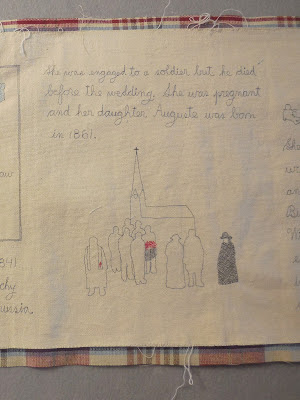 She was engaged to a soldier but he died
before the wedding. She was pregnant
and her daughter Auguste was born
in 1861.
aw
1841
chy
russia.
She
w
a